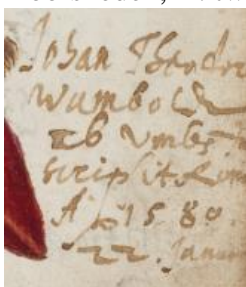 Johan Theodor
Wambold
ab Vmbst
scripsit
A 1580.
22. Janua